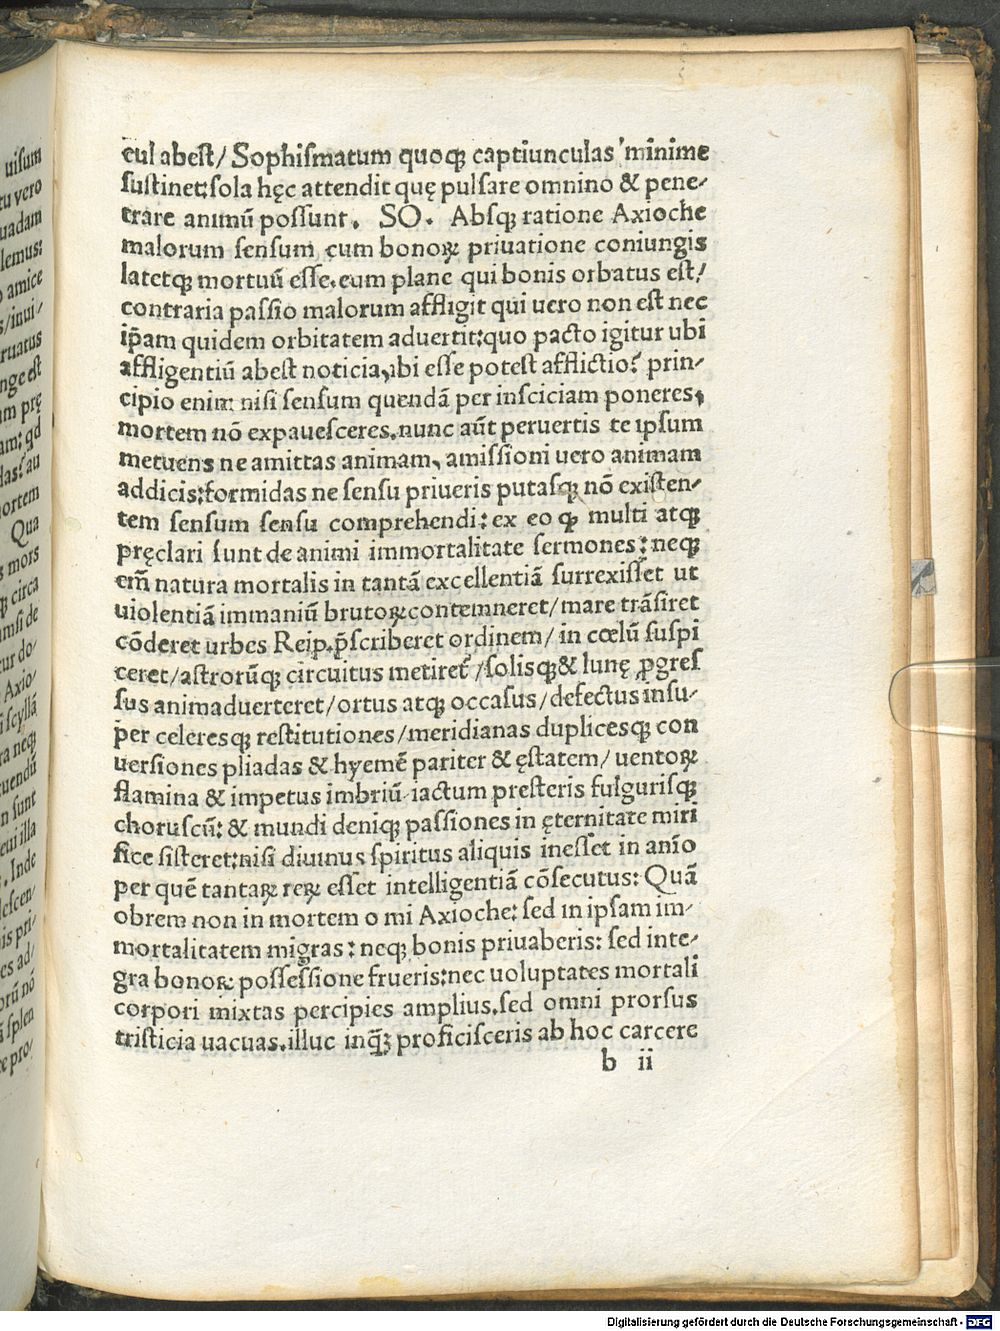 uisum
tu vero
uadam
lemus:
o amice
s/inui/
ruatus
nge est
am prę
am: qd
das? au
ortem
Qua
s mors
ꝙ circa
amsi de
tur do/
Axio/
i scyllā
ra neqꝫ
uendū
n sunt
cui illa
. Inde
descen/
is pri/
es ad/
orū nō
splen
pro/
cul abest/ Sophismatum quoqꝫ captiunculas minime
sustinet: sola hęc attendit quę pulsare omnino & pene/
trare animū possunt. SO. Absqꝫ ratione Axioche
malorum sensum cum bonoꝝ priuatione coniungis
latetqꝫ mortuū esse. eum plane qui bonis orbatus est/
contraria passio malorum affligit qui uero non est nec
ip̄am quidem orbitatem aduertit: quo pacto igitur ubi
affligentiū abest noticia, ibi esse potest afflictio? prin/
cipio enim nisi sensum quendā per insciciam poneres,
mortem nō expauesceres. nunc aūt peruertis te ipsum
metuens ne amittas animam, amissioni uero animam
addicis: formidas ne sensu priueris putasqꝫ nō existen/
tem sensum sensu comprehendi: ex eo ꝙ multi atqꝫ
pręclari sunt de animi immortalitate sermones: neqꝫ
em̄ natura mortalis in tantā excellentiā surrexisset ut
uiolentiā immaniū brutoꝝ contemneret/ mare trāsiret
cōderet urbes Reip. p̄scriberet ordinem/ in cœlū suspi
ceret/ astrorūqꝫ circuitus metiret᷑/ solisqꝫ & lunę ꝓgres
sus animaduerteret/ ortus atqꝫ occasus/ defectus insu/
per celeresqꝫ restitutiones/ meridianas duplicesqꝫ con
uersiones pliadas & hyemē pariter & ęstatem/ uentoꝝ
flamina & impetus imbriū iactum presteris fulgurisqꝫ
choruscū: & mundi deniqꝫ passiones in ęternitate miri
fice sisteret: nisi diuinus spiritus aliquis inesset in anīo
per quē tantaꝝ reꝝ esset intelligentiā cōsecutus: Quā
obrem non in mortem o mi Axioche: sed in ipsam im/
mortalitatem migras: neqꝫ bonis priuaberis: sed inte/
gra bonoꝝ possessione frueris: nec uoluptates mortali
corpori mixtas percipies amplius. sed omni prorsus
tristicia uacuas. illuc inqꝫ proficisceris ab hoc carcere
b ii
Digitalisierung gefördert durch die Deutsche Forschungsgemeinschaft - DFG